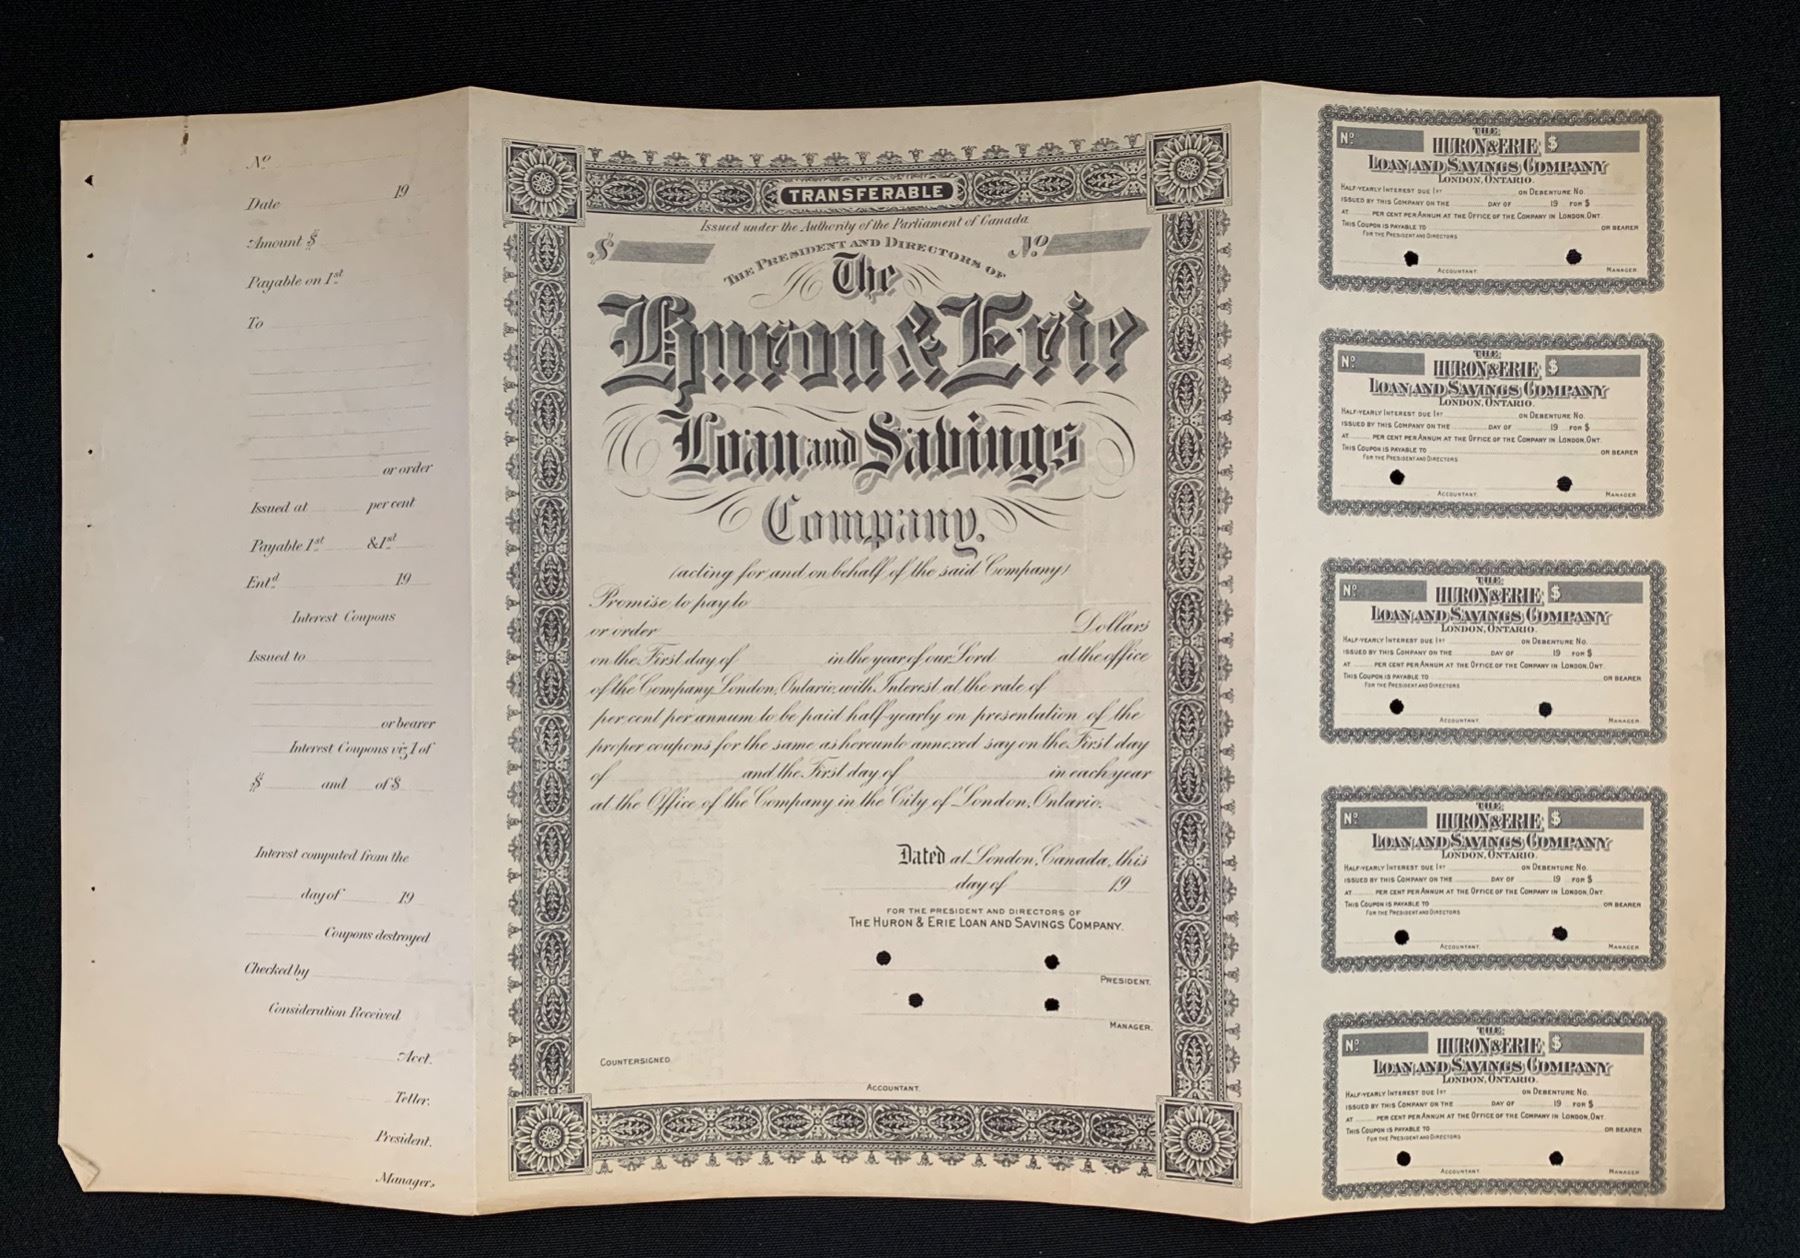 No
Date 19
Amount $
Payable on 1st
To
or order
Issued at per cent
Payable 1st & 1st
Entd 19
Interest Coupons
Issued to
or bearer
Interest Coupons viz 1 of
$ and of $
Interest computed from the
day of 19
Coupons destroyed
Checked by
Consideration Received
Acct.
Teller.
President.
Manager,
TRANSFERABLE
Issued under the Authority of the Parliament of Canada
$ No
THE PRESIDENT AND DIRECTORS OF
The
Huron & Erie
Loan and Savings
Company.
(acting for and on behalf of the said Company)
Promise to pay to
or order Dollars
on the First day of in the year of our Lord at the office
of the Company London, Ontario, with Interest at the rate of
per cent per annum to be paid half-yearly on presentation of the
proper coupons for the same as hereunto annexed say on the First day
of and the First day of in each year
at the Office of the Company in the City of London, Ontario.
Dated at London, Canada, this
day of 19
FOR THE PRESIDENT AND DIRECTORS OF
THE HURON & ERIE LOAN AND SAVINGS COMPANY.
PRESIDENT.
MANAGER.
COUNTERSIGNED
ACCOUNTANT.
THE
No HURON & ERIE $
LOAN AND SAVINGS COMPANY
LONDON, ONTARIO.
HALF-YEARLY INTEREST DUE 1ST ON DEBENTURE NO.
ISSUED BY THIS COMPANY ON THE DAY OF 19 FOR $
AT PER CENT PER ANNUM AT THE OFFICE OF THE COMPANY IN LONDON, ONT.
THIS COUPON IS PAYABLE TO OR BEARER
FOR THE PRESIDENT AND DIRECTORS
ACCOUNTANT. MANAGER
THE
No HURON & ERIE $
LOAN AND SAVINGS COMPANY
LONDON, ONTARIO.
HALF-YEARLY INTEREST DUE 1ST ON DEBENTURE NO.
ISSUED BY THIS COMPANY ON THE DAY OF 19 FOR $
AT PER CENT PER ANNUM AT THE OFFICE OF THE COMPANY IN LONDON, ONT.
THIS COUPON IS PAYABLE TO OR BEARER
FOR THE PRESIDENT AND DIRECTORS
ACCOUNTANT. MANAGER
THE
No HURON & ERIE $
LOAN AND SAVINGS COMPANY
LONDON, ONTARIO.
HALF-YEARLY INTEREST DUE 1ST ON DEBENTURE NO.
ISSUED BY THIS COMPANY ON THE DAY OF 19 FOR $
AT PER CENT PER ANNUM AT THE OFFICE OF THE COMPANY IN LONDON, ONT.
THIS COUPON IS PAYABLE TO OR BEARER
FOR THE PRESIDENT AND DIRECTORS
ACCOUNTANT. MANAGER
THE
No HURON & ERIE $
LOAN AND SAVINGS COMPANY
LONDON, ONTARIO.
HALF-YEARLY INTEREST DUE 1ST ON DEBENTURE NO.
ISSUED BY THIS COMPANY ON THE DAY OF 19 FOR $
AT PER CENT PER ANNUM AT THE OFFICE OF THE COMPANY IN LONDON, ONT.
THIS COUPON IS PAYABLE TO OR BEARER
FOR THE PRESIDENT AND DIRECTORS
ACCOUNTANT. MANAGER
THE
No HURON & ERIE $
LOAN AND SAVINGS COMPANY
LONDON, ONTARIO.
HALF-YEARLY INTEREST DUE 1ST ON DEBENTURE NO.
ISSUED BY THIS COMPANY ON THE DAY OF 19 FOR $
AT PER CENT PER ANNUM AT THE OFFICE OF THE COMPANY IN LONDON, ONT.
THIS COUPON IS PAYABLE TO OR BEARER
FOR THE PRESIDENT AND DIRECTORS
ACCOUNTANT. MANAGER